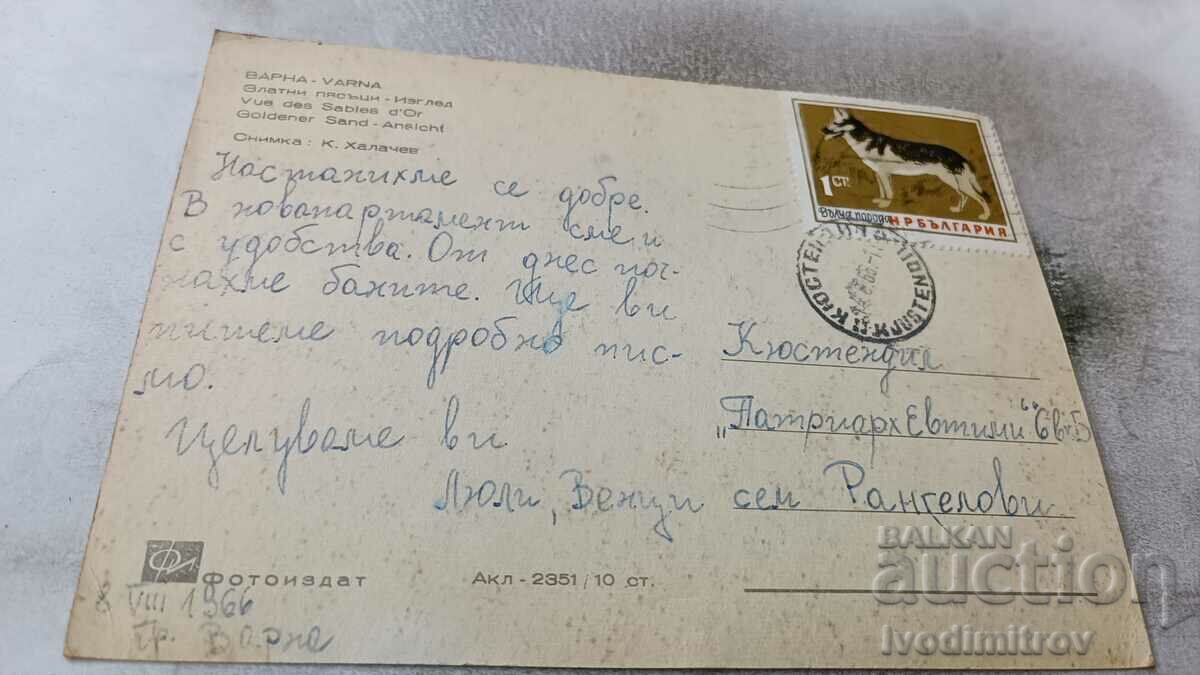 ВАРНА - VARNA
Златни пясъци - Изглед
Vue des Sables d'Or
Goldener Sand - Ansicht
Снимка: К. Халачев
Настанихме се добре.
В новапартамент сме и
с удобства. От днес поч-
нахме баните. Ще ви
пишеме подробно пис-
мо.
Целуваме ви
Люли, Венци
1 СТ.
Вълча порода
НР БЪЛГАРИЯ
КЮСТЕНДИЛ
KJUSTENDIL
Кюстендил
"Патриарх Евтими" 6 вх Б
сем Рангелови
ФОТОИЗДАТ
Акл - 2351 / 10 ст.
VIII 1966
гр. Варна
BALKAN
auction
Ivodimitrov